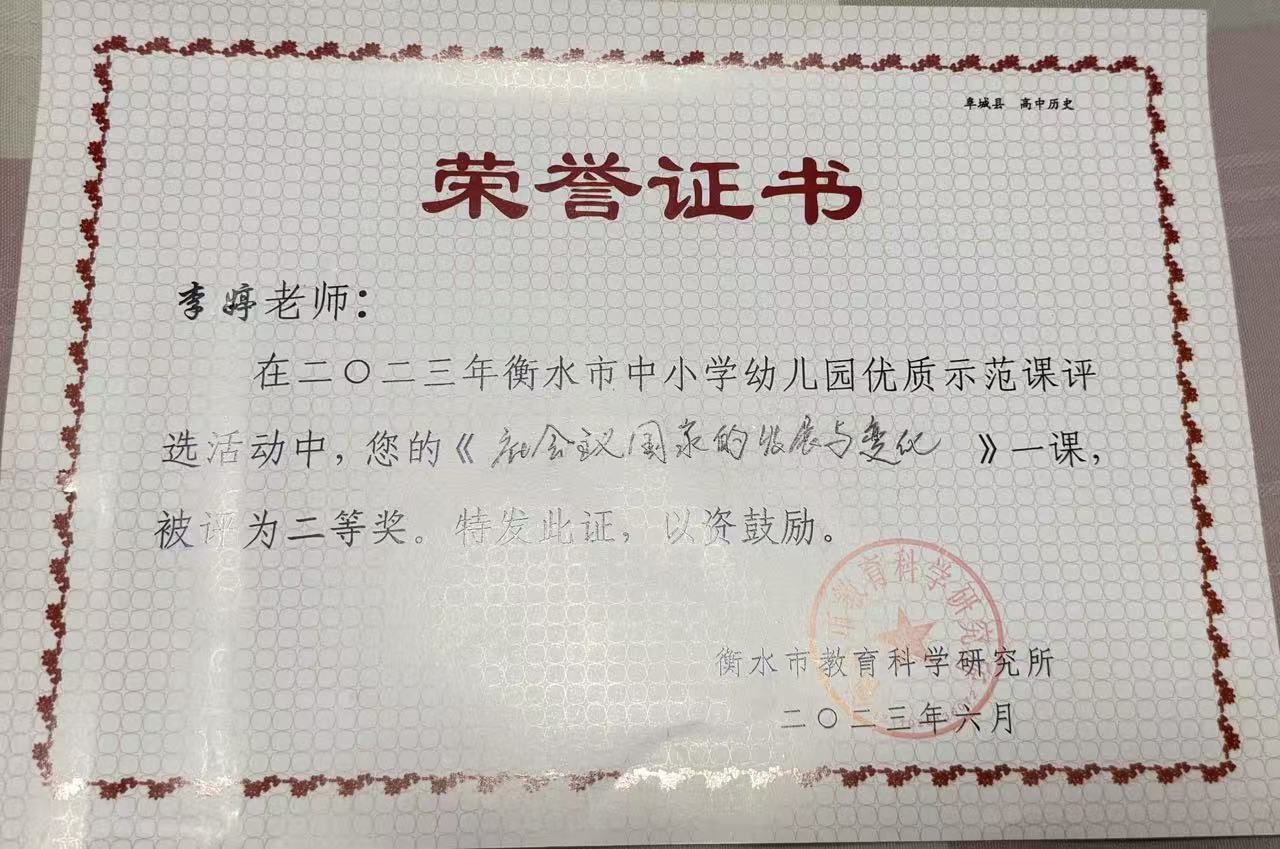 阜城县 高中历史
荣誉证书
李婷老师：
在二〇二三年衡水市中小学幼儿园优质示范课评
选活动中，您的《社会主义国家的发展与变化》一课，
被评为二等奖。特发此证，以资鼓励。
市教育科学研究
衡水市教育科学研究所
二〇二三年六月